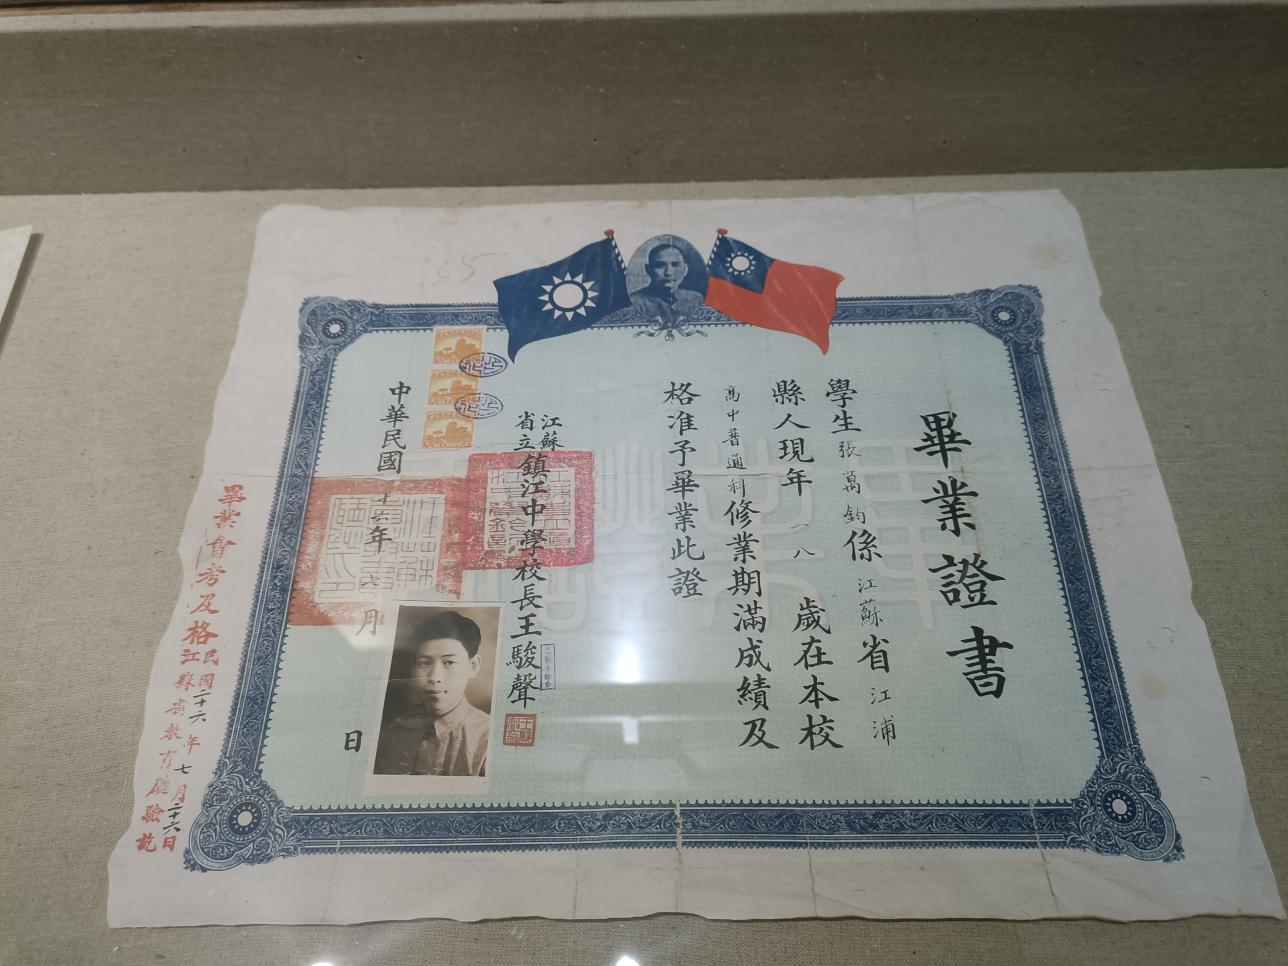 畢業證書
學生張萬鈞係江蘇省江浦
縣人現年一八歲在本校
高中普通科修業期滿成績及
格准予畢業此證
江蘇省立鎮江中學校長王駿聲
中華民國
年七月
日
畢業會考及格
民國二十六年七月二十六日
江蘇省教育廳驗訖